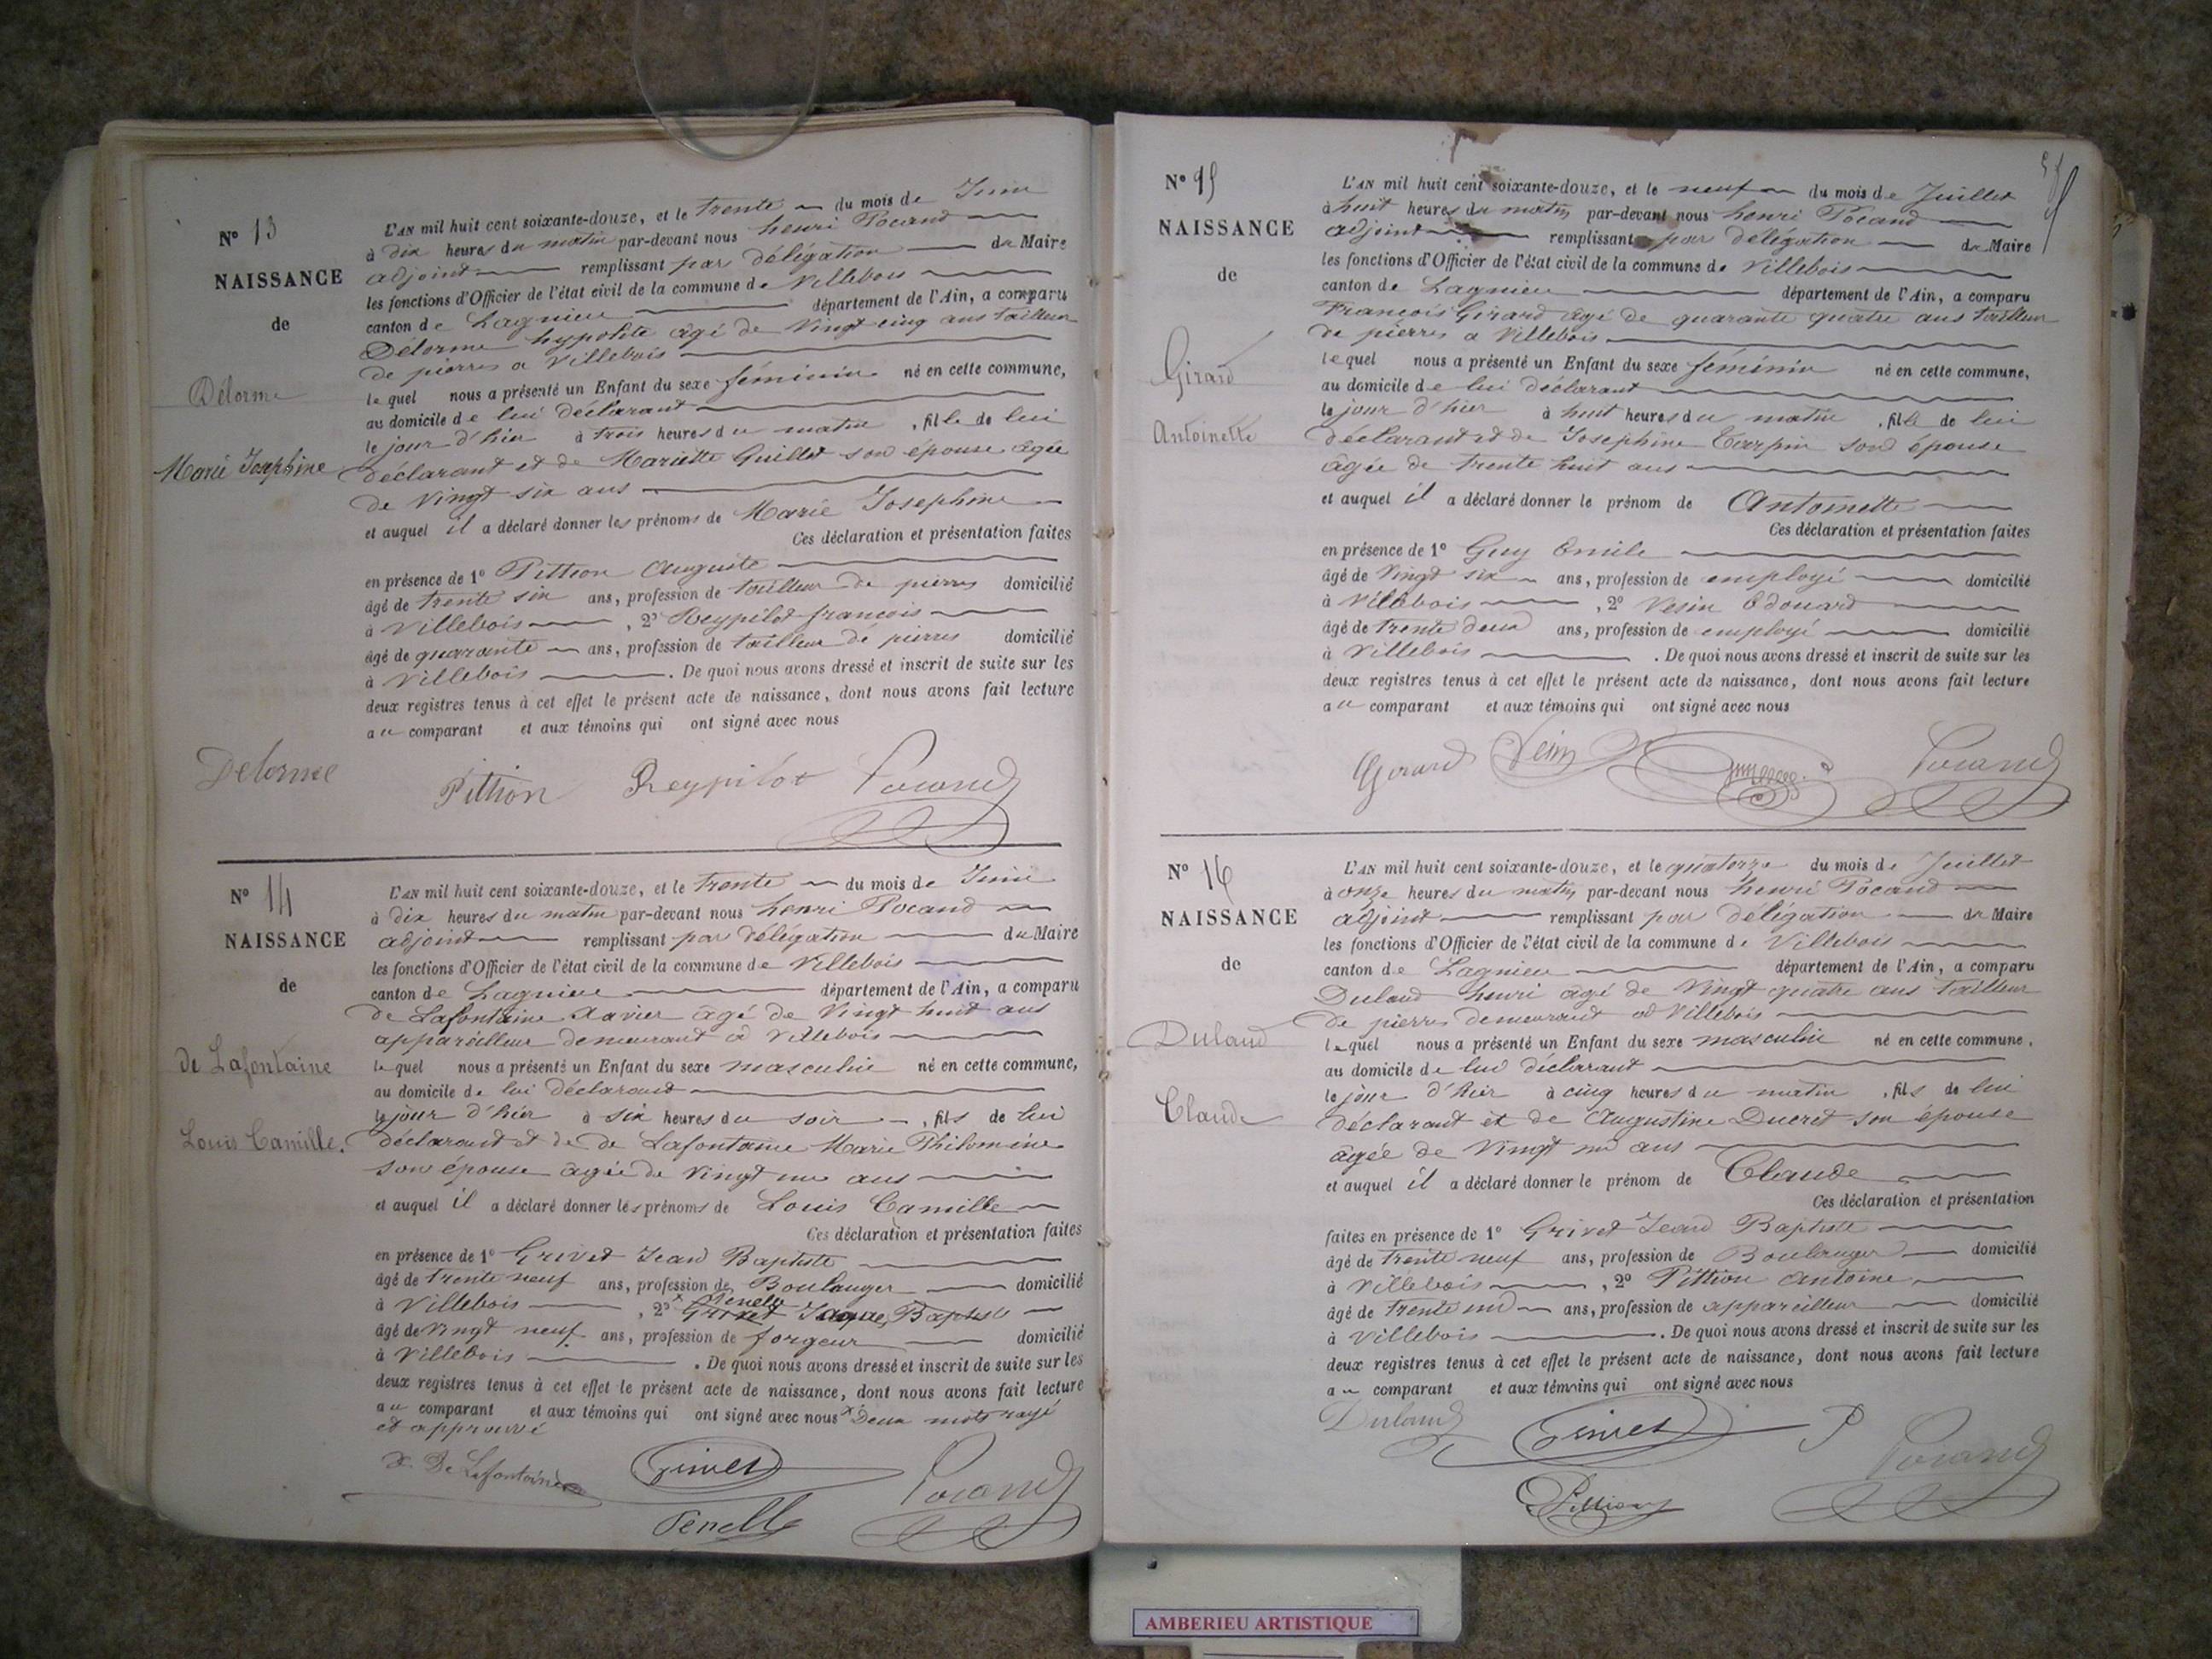 N° 13
NAISSANCE
de
Délorme
Marie Josephine
L'AN mil huit cent soixante-douze, et le trente du mois de Juin
à dix heures du matin par-devant nous henri Pocand
adjoint remplissant par délégation du Maire
les fonctions d'Officier de l'état civil de la commune de Villebois
canton de Lagnieu département de l'Ain, a comparu
Délorme hypolite âgé de Vingt cinq ans tailleur
de pierres a Villebois
lequel nous a présenté un Enfant du sexe féminin né en cette commune,
au domicile de lui déclarant
le jour d'hier à trois heures du matin, fille de lui
déclarant et de Mariette Guillet son épouse agée
de Vingt six ans
et auquel il a déclaré donner les prénoms de Marie Josephine
Ces déclaration et présentation faites
en présence de 1° Pittion Auguste
âgé de trente six ans, profession de tailleur de pierres domicilié
à Villebois, 2° Reypilot françois
âgé de quarante ans, profession de tailleur de pierres domicilié
à Villebois. De quoi nous avons dressé et inscrit de suite sur les
deux registres tenus à cet effet le présent acte de naissance, dont nous avons fait lecture
au comparant et aux témoins qui ont signé avec nous
Delorme Pittion Reypilot Pocand
N° 14
NAISSANCE
de
de Lafontaine
Louis Camille.
L'AN mil huit cent soixante-douze, et le trente du mois de Juin
à dix heures du matin par-devant nous henri Pocand
adjoint remplissant par délégation du Maire
les fonctions d'Officier de l'état civil de la commune de Villebois
canton de Lagnieu département de l'Ain, a comparu
de Lafontaine Xavier âgé de Vingt huit ans
appareilleur demeurant à Villebois
lequel nous a présenté un Enfant du sexe masculin né en cette commune,
au domicile de lui déclarant
le jour d'hier à six heures du soir, fils de lui
déclarant et de de Lafontaine Marie Philomine
son épouse agée de Vingt un ans
et auquel il a déclaré donner les prénoms de Louis Camille
Ces déclaration et présentation faites
en présence de 1° Grivet Jean Baptiste
âgé de trente neuf ans, profession de Boulanger domicilié
à Villebois, 2° x Penelle Grivet Baptiste
âgé de Vingt neuf ans, profession de forgeur domicilié
à Villebois. De quoi nous avons dressé et inscrit de suite sur les
deux registres tenus à cet effet le présent acte de naissance, dont nous avons fait lecture
au comparant et aux témoins qui ont signé avec nous x Deux mots rayé
et approuvé
X. De Lafontaine Grivet Pocand
Penelle
N° 15
NAISSANCE
de
Girard
Antoinette
L'AN mil huit cent soixante-douze, et le neuf du mois de Juillet
à huit heures du matin par-devant nous henri Pocand
adjoint remplissant par délégation du Maire
les fonctions d'Officier de l'état civil de la commune de Villebois
canton de Lagnieu département de l'Ain, a comparu
François Girard âgé de quarante quatre ans tailleur
de pierres a Villebois
lequel nous a présenté un Enfant du sexe féminin né en cette commune,
au domicile de lui déclarant
le jour d'hier à huit heures du matin, fille de lui
déclarant et de Josephine Tarpin son épouse
âgée de trente huit ans
et auquel il a déclaré donner le prénom de Antoinette
Ces déclaration et présentation faites
en présence de 1° Guy Emile
âgé de Vingt six ans, profession de employé domicilié
à Villebois, 2° Vesin Edouard
âgé de trente deux ans, profession de employé domicilié
à Villebois. De quoi nous avons dressé et inscrit de suite sur les
deux registres tenus à cet effet le présent acte de naissance, dont nous avons fait lecture
au comparant et aux témoins qui ont signé avec nous
Girard Vesin Pocand
N° 16
NAISSANCE
de
Duland
Claude
L'AN mil huit cent soixante-douze, et le quatorze du mois de Juillet
à onze heures du matin par-devant nous henri Pocand
adjoint remplissant par délégation du Maire
les fonctions d'Officier de l'état civil de la commune de Villebois
canton de Lagnieu département de l'Ain, a comparu
Duland henri âgé de Vingt quatre ans tailleur
de pierres demeurant à Villebois
lequel nous a présenté un Enfant du sexe masculin né en cette commune,
au domicile de lui déclarant
le jour d'hier à cinq heures du matin, fils de lui
déclarant et de Augustine Ducret son épouse
âgée de Vingt un ans
et auquel il a déclaré donner le prénom de Claude
Ces déclaration et présentation
faites en présence de 1° Grivet Jean Baptiste
âgé de trente neuf ans, profession de Boulanger domicilié
à Villebois, 2° Pittion Antoine
âgé de trente un ans, profession de appareilleur domicilié
à Villebois. De quoi nous avons dressé et inscrit de suite sur les
deux registres tenus à cet effet le présent acte de naissance, dont nous avons fait lecture
au comparant et aux témoins qui ont signé avec nous
Duland Grivet P Pocand
Pittion
AMBERIEU ARTISTIQUE